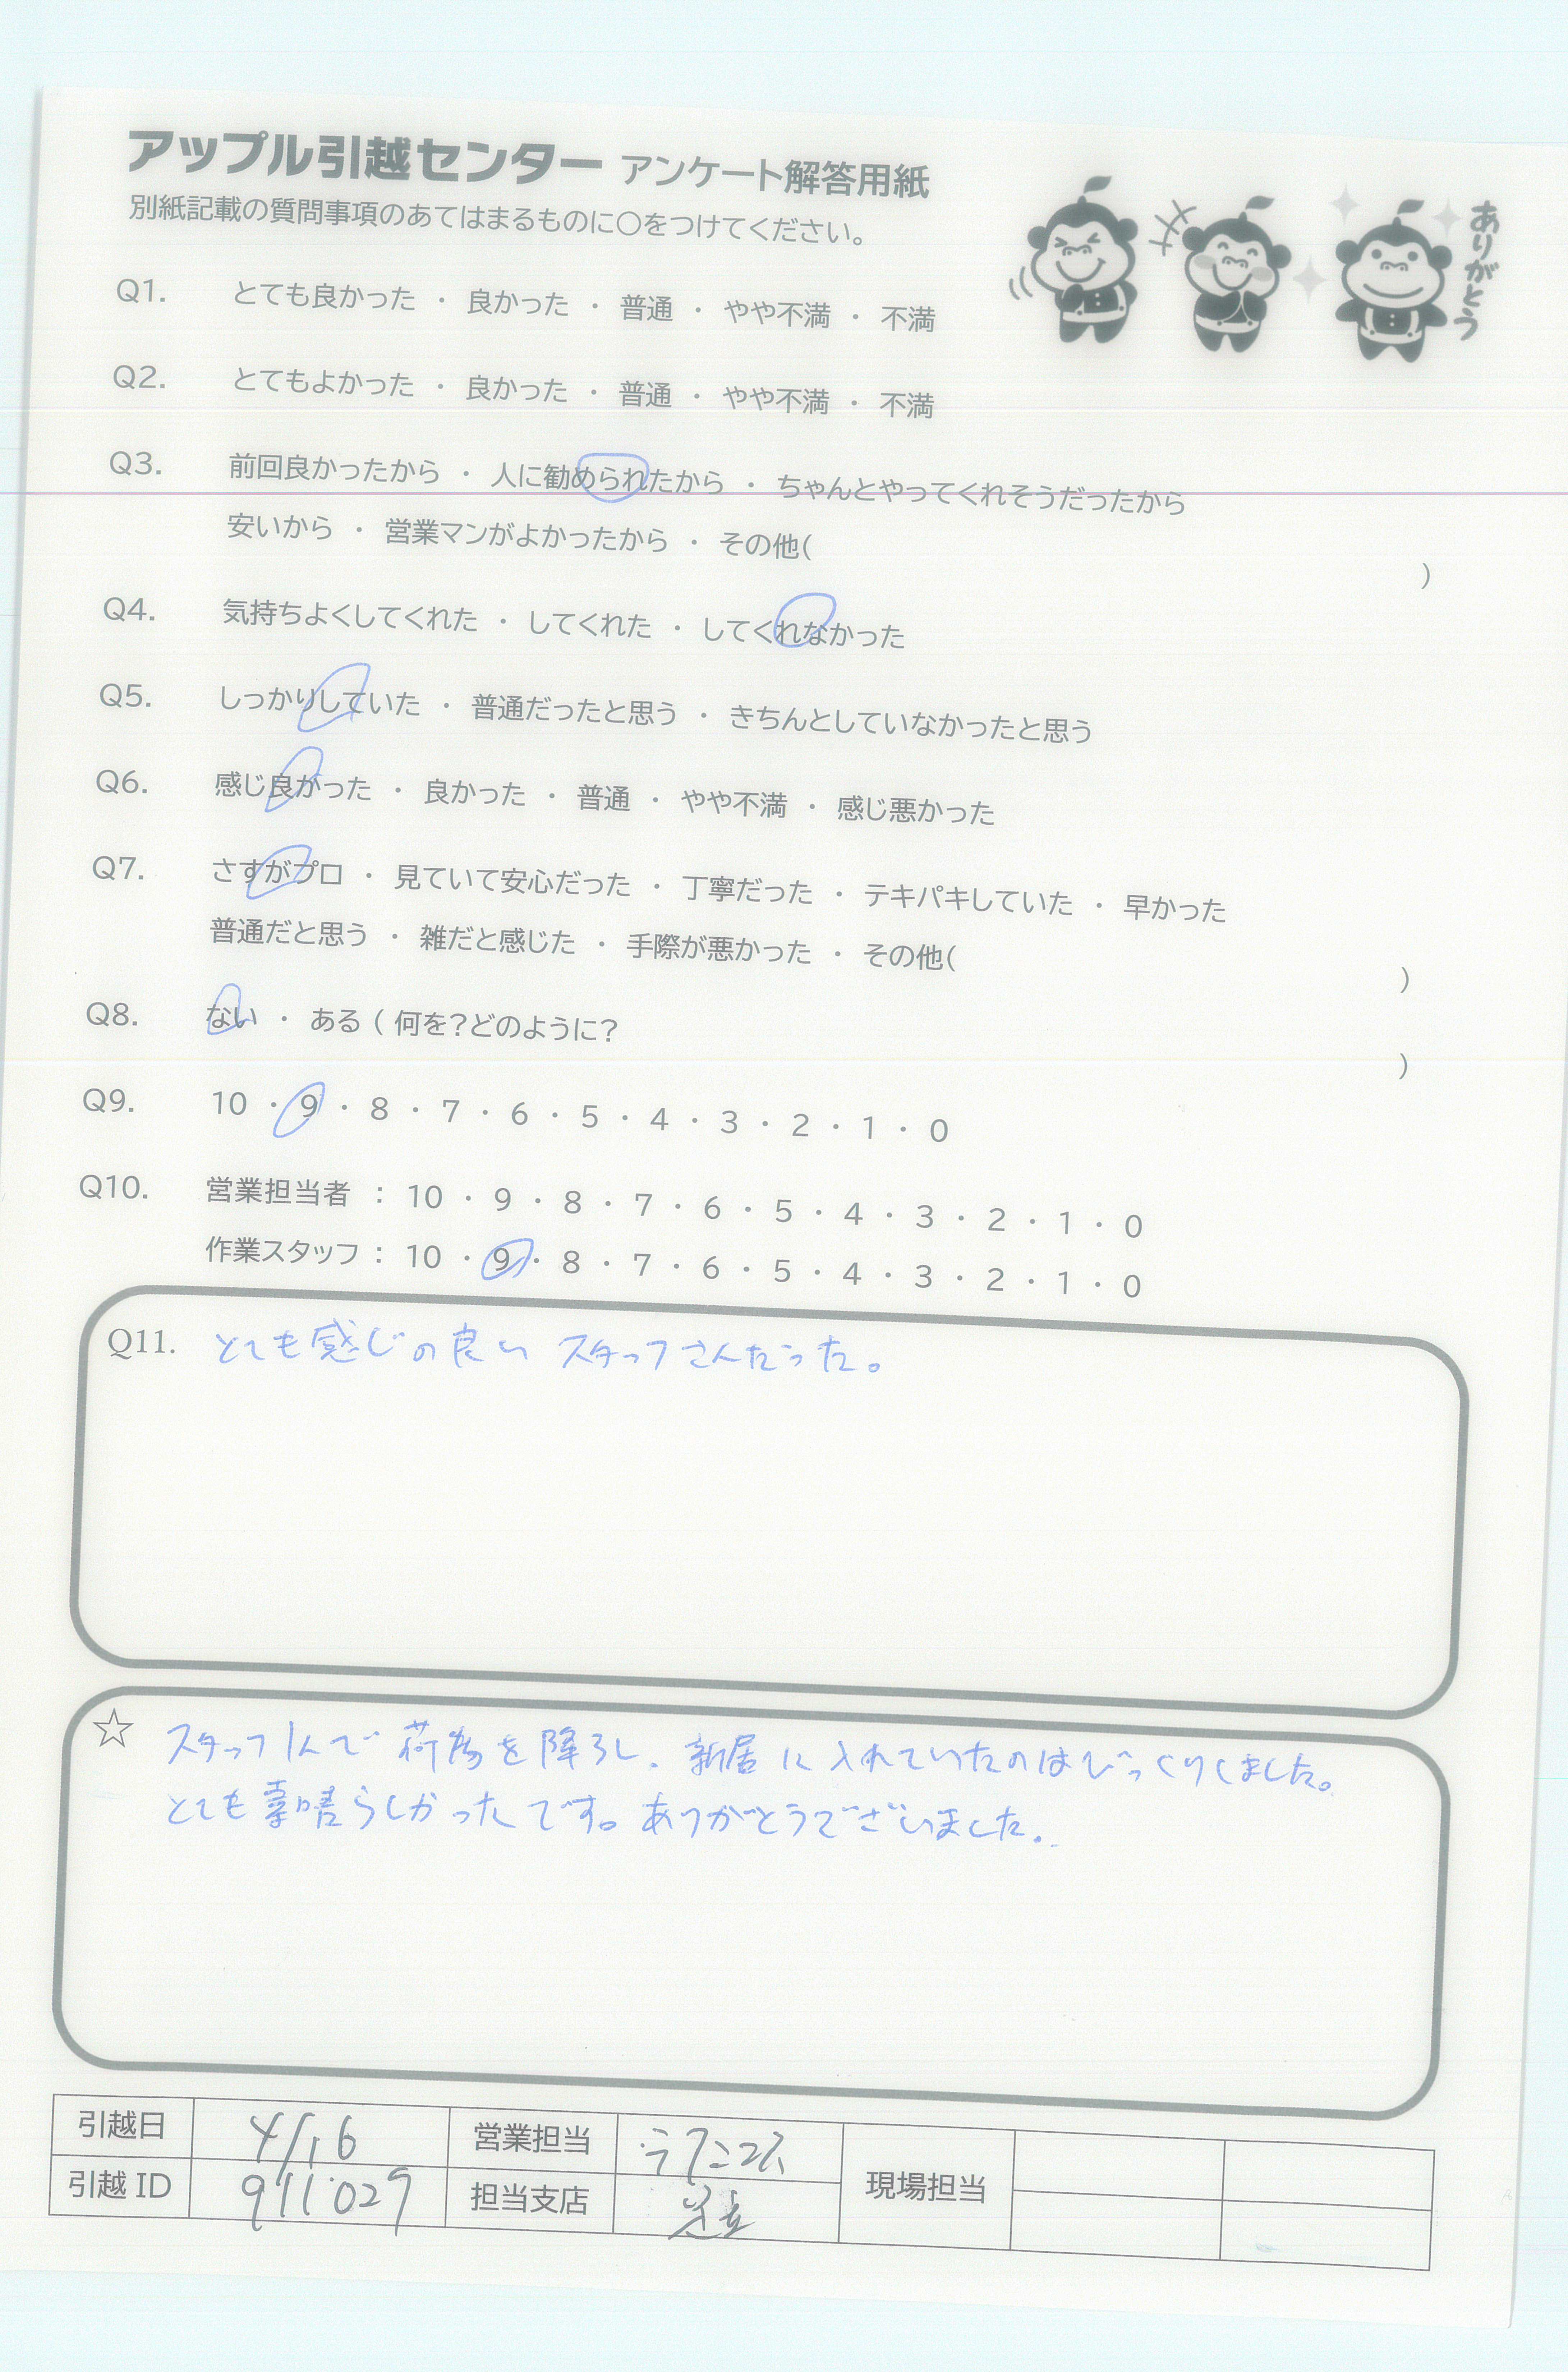 アップル引越センター アンケート解答用紙
別紙記載の質問事項のあてはまるものに〇をつけてください。
ありがとう
Q1. とても良かった ・ 良かった ・ 普通 ・ やや不満 ・ 不満
Q2. とてもよかった ・ 良かった ・ 普通 ・ やや不満 ・ 不満
Q3. 前回良かったから ・ 人に勧められたから ・ ちゃんとやってくれそうだったから
安いから ・ 営業マンがよかったから ・ その他( )
Q4. 気持ちよくしてくれた ・ してくれた ・ してくれなかった
Q5. しっかりしていた ・ 普通だったと思う ・ きちんとしていなかったと思う
Q6. 感じ良かった ・ 良かった ・ 普通 ・ やや不満 ・ 感じ悪かった
Q7. さすがプロ ・ 見ていて安心だった ・ 丁寧だった ・ テキパキしていた ・ 早かった
普通だと思う ・ 雑だと感じた ・ 手際が悪かった ・ その他( )
Q8. ない ・ ある ( 何を?どのように? )
Q9. 10 ・ 9 ・ 8 ・ 7 ・ 6 ・ 5 ・ 4 ・ 3 ・ 2 ・ 1 ・ 0
Q10. 営業担当者 : 10 ・ 9 ・ 8 ・ 7 ・ 6 ・ 5 ・ 4 ・ 3 ・ 2 ・ 1 ・ 0
作業スタッフ : 10 ・ 9 ・ 8 ・ 7 ・ 6 ・ 5 ・ 4 ・ 3 ・ 2 ・ 1 ・ 0
Q11. とても感じの良い スタッフさんだった。
☆ スタッフ1人で 荷物を降ろし、新居に入れていたのはびっくりしました。
とても素晴らしかったです。ありがとうございました。
引越日 4/16 営業担当
引越ID 911029 担当支店 足立 現場担当